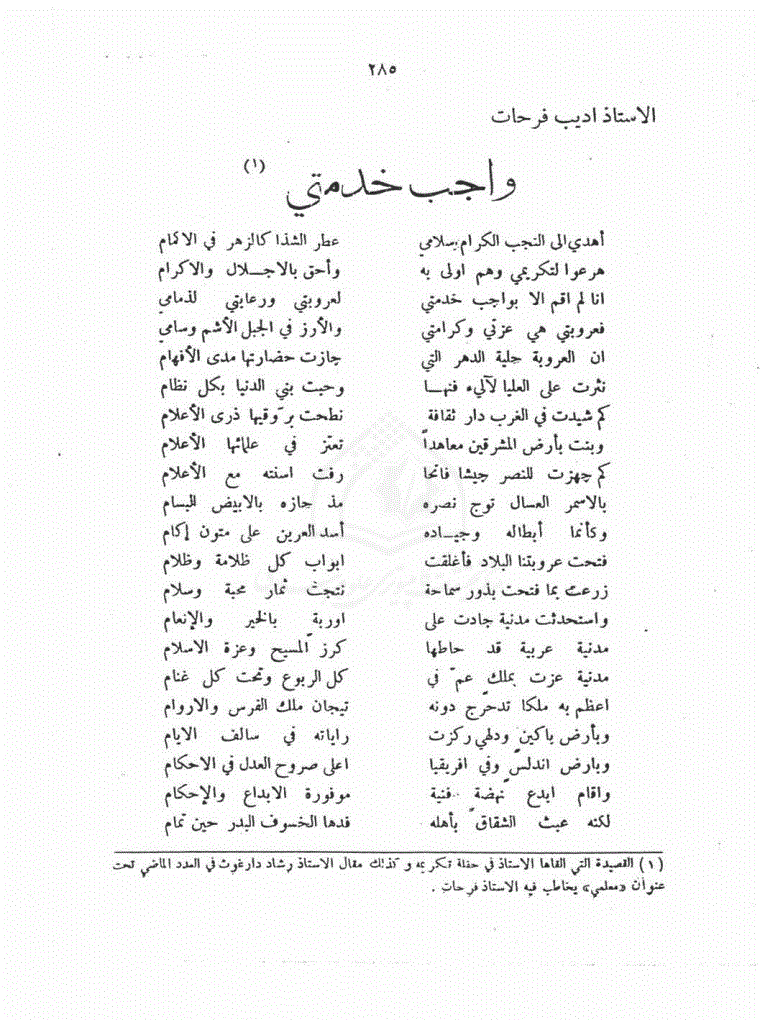 ٢٨٥
الاستاذ اديب فرحات
واجب خدمتي (١)
أهدي الى النجب الكرام سلامي عطر الشذا كالزهر في الاكمام
هرعوا لتكريمي وهم اولى به وأحق بالاجــلال والاكرام
انا لم اقم الا بواجب خدمتي لعروبتي ورعايتي لذمامي
فعروبتي هي عزتي وكرامتي والأرز في الجبل الأشم وسامي
ان العروبة حلية الدهر التي جازت حضارتها مدى الأفهام
نثرت على العليا لآليء فنهــا وحبت بني الدنيا بكل نظام
كم شيدت في الغرب دار ثقافة نطحت برَوقيها ذرى الأعلام
وبنت بأرض المشرقين معاهداً تعتز في علمائها الأعلام
كم جهزت للنصر جيشا فاتحا رفت اسنته مع الأعلام
بالاسمر العسال توج نصره مذ حازه بالابيض البسام
وكأنما أبطاله وجيــاده أسد العرين على متون إكام
فتحت عروبتنا البلاد فأغلقت ابواب كل ظلامة وظلام
زرعت بما فتحت بذور سماحة نتجت ثمار محبة وسلام
واستحدثت مدنية جادت على اوربة بالخير والإنعام
مدنية عربية قد حاطها كرز المسيح وعزة الاسلام
مدنية عزت بملك عمّ في كل الربوع وتحت كل غنام
اعظم به ملكا تدحرج دونه تيجان ملك الفرس والاروام
وبأرض باكين ودلهي ركزت راياته في سالف الايام
وبارض اندلس وفي افريقيا اعلى صروح العدل في الاحكام
واقام ابدع نهضة فنية موفورة الابداع والإحكام
لكنه عبث الشقاق بأهله فدها الخسوف البدر حين تمام
(١) القصيدة التي القاها الاستاذ في حفلة تكريمه وكذلك مقال الاستاذ رشاد دارغوث في العدد الماضي تحت
عنوان «معلمي» يخاطب فيه الاستاذ فرحات .